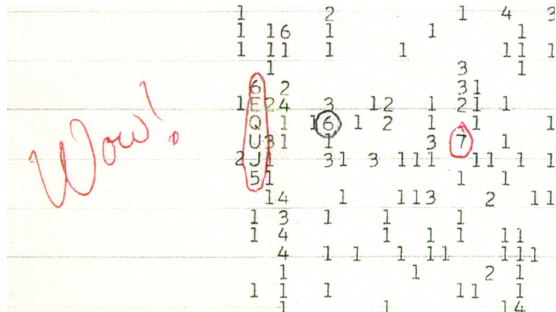 1 2 1 4 3
1 16 1 1 1
1 11 1 1 11 1
1 3 1
6 2 31
1 E24 3 12 1 21 1
Q 1 16 1 2 1 1 1
Wow! U31 1 3 7 1
2 J1 31 3 111 11 1 1
51 1 1
14 1 113 2 11
1 3 1 1 1
1 4 1 1 1 11
4 1 1 1 11 111
1 1 2 1
1 1 1 11 1
1 1 14